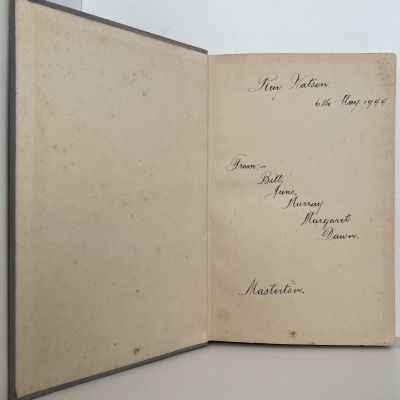 Ray Watson.
6th May 1944
From:-
Bill,
June,
Murray
Margaret
Dawn.
Masterton.